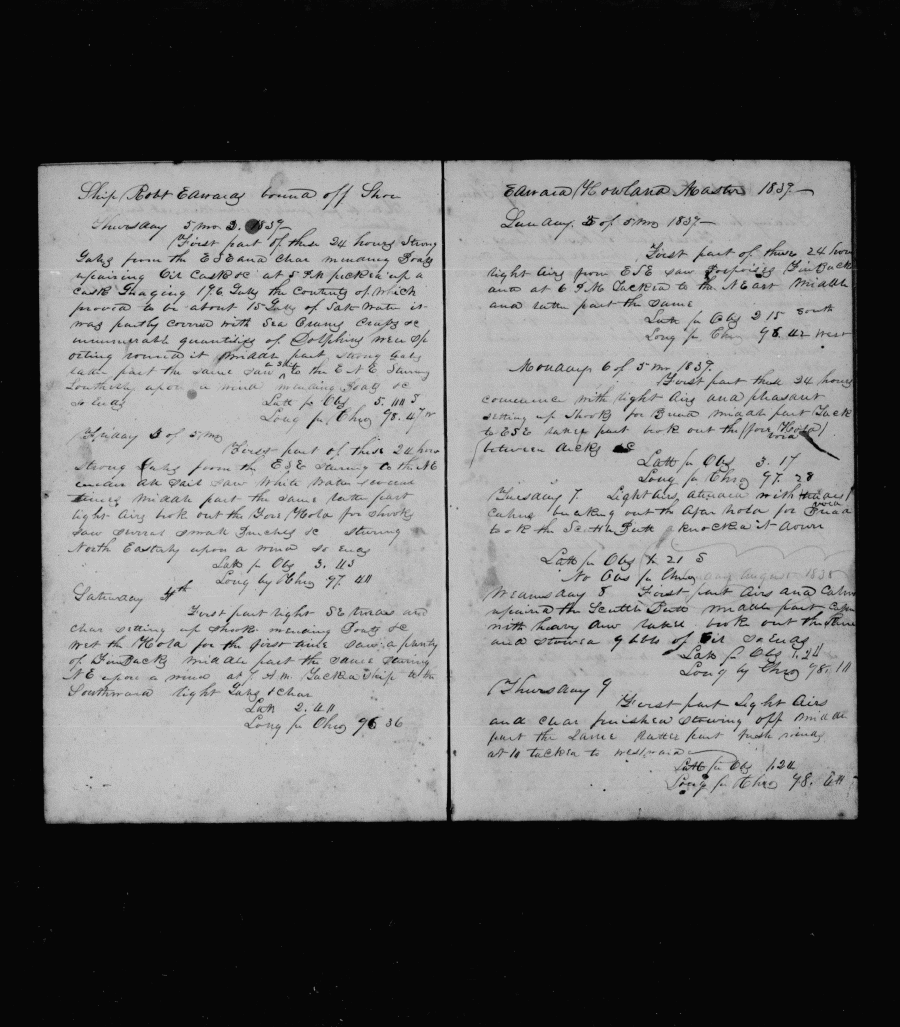 Ship Robt Edwards bound off Shore
Thursday 5 mo 2. 1839
First part of these 24 hours Strong
Gales from the ESE and Clear mending Boats
repairing Oil Casks &c at 5 P.M picked up a
cask Guaging 196 Galls the Contents of which
proved to be about 15 Galls of Salt Water it
was partly covered with Sea Crabs &c
innumerable quantities of Dolphins were sp
orting round it Middle part strong Gales
latter part the same Saw to the E N E Steering
Southerly upon a wind mending Boats &c
So ends Latt pr Obs 5.
Long pr Chro 98. 47 W
Friday 3 of 5 mo
First part of these 24 hours
Strong Gales from the ESE Steering to the NE
under all sail Saw White Water several
times Middle part the same latter part
light Airs took out the Fore Hold for Shooks
Saw several small Finches &c Steering
North Easterly upon a wind so ends
Latt pr Obs 3.
Long by Chro 97.
Saturday 4th
First part light SE trades and
clear setting up shook mending Boats &c
wet the Hold for the first time Saw a plenty
of Finbacks Middle part the same Steering
NE upon a wind at 7 A.M. Tacked Ship to the
Southward light Gales & clear
Latt 2.
Long pr Chro 96 36
Edward Howland Master 1839
Sunday 5 of 5 mo 1839
First part of these 24 hours
light Airs from ESE saw Porpoises Finbacks
and at 6 P.M Tacked to the N East Middle
and latter part the same
Latt pr Obs 2 15 South
Long pr Chro 96. 42 West
Monday 6 of 5 mo 1839
First part these 24 hours
commence with light Airs and pleasant
setting up Shooks for Bread middle part Tack
to ESE latter part took out the Fore Hold
between decks &c
Latt pr Obs 3. 17
Long pr Chro 97. 28
Tuesday 7. Light airs, attended with
Calms breaking out the After hold for Bread
took the Scuttle Butt & knocked it down
Latt pr Obs 21 S
No Obs pr Chro
Wednesday 8 First part Airs and Calms
repaired the Scuttle Butt middle part Calm
with heavy dew latter took out the
and stowed 9 bbls of Oil So ends
Latt pr Obs 1.24
Long by Chro 98.
Thursday 9
First part Light Airs
and clear finished Stowing off Middle
part the Same latter part fresh winds
at tacked to westward
Latt pr Obs 1.24
Long pr Chro 98.